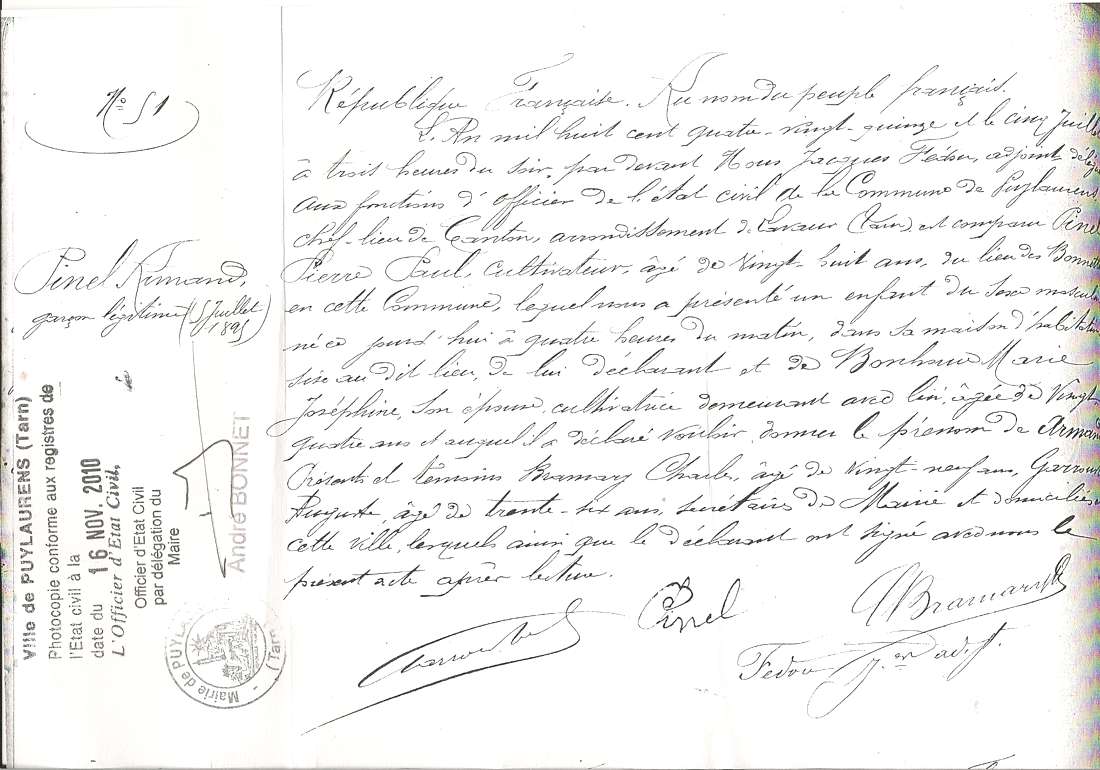 N° 51
Pinel Armand,
garçon légitime (5 Juillet
1895)
Ville de PUYLAURENS (Tarn)
Photocopie conforme aux registres de
l'Etat civil à la
date du 16 NOV. 2010
L'Officier d'Etat Civil,
Officier d'Etat Civil
par délégation du
Maire
André BONNET
Mairie de PUYLA
(Tarn)
République Française. Au nom du peuple français.
L'An mil huit cent quatre-vingt-quinze et le cinq Juillet
à trois heures du soir, par devant Nous Jacques Fédou, adjoint délégué
aux fonctions d'officier de l'état civil de la Commune de Puylaurens,
chef-lieu de Canton, arrondissement de Lavaur (Tarn) est comparu Pinel
Pierre Paul, cultivateur, âgé de vingt-huit ans, du lieu des Bonnets
en cette Commune, lequel nous a présenté un enfant du sexe masculin
né ce jourd'hui à quatre heures du matin, dans sa maison d'habitation
sise au dit lieu, de lui déclarant et de Bonhoure Marie
Joséphine, son épouse, cultivatrice demeurant avec lui, âgée de Vingt-
quatre ans et auquel il a déclaré vouloir donner le prénom de Armand
Présents et témoins Bramary Charles, âgé de vingt-neuf ans,
Auguste, âgé de trente-six ans, secrétaires de Mairie et domiciliés
cette ville, lesquels ainsi que le déclarant ont signé avec nous le
présent acte après lecture.
Pinel
Bramary
Fedou